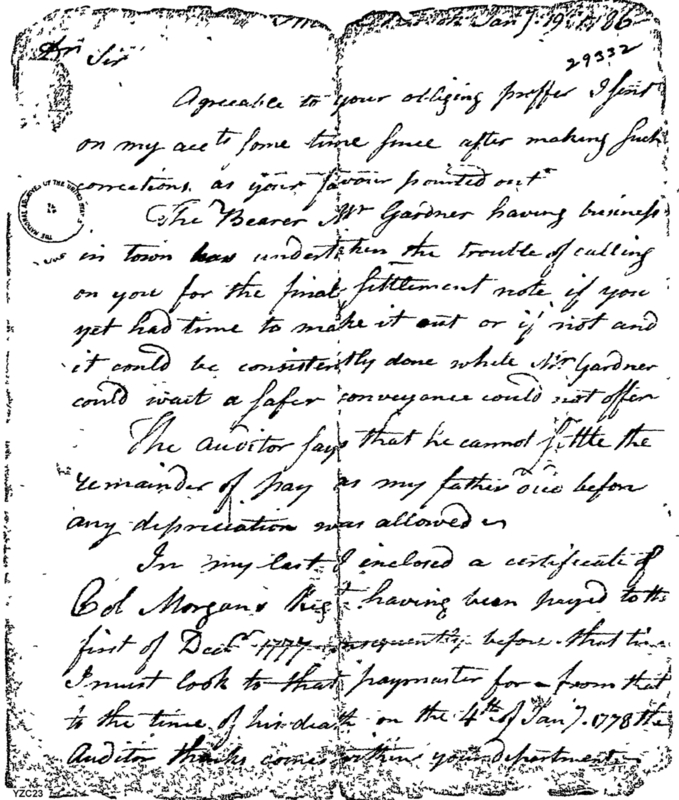 Jany. 19th 1786
29332
Dr Sir
Agreeable to your obliging proffer I sent
on my accts some time since after making such
corrections as your favour pointed out
The Bearer Mr Gardner having business
in town has undertaken the trouble of calling
on you for the final settlement note if you
yet had time to make it out or if not and
it could be consistently done while Mr Gardner
could wait a safer conveyance could not offer
The Auditor says that he cannot settle the
remainder of pay as my father died before
any depreciation was allowed
In my last I enclosed a certificate of
Col Morgan's Regt having been payed to the
first of Decr 1777 consequently before that time
I must look to that paymaster for - from that
to the time of his death on the 4th of Jany. 1778 the
Auditor thinks comes within your department
YZC23